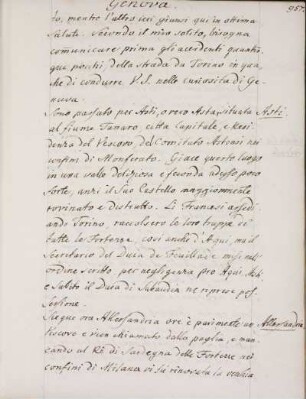 Genova.
957.
do, mentre l'altro ieri giunsi qui in ottima
salute. Secondo il mio solito, bisogna
comunicare prima gli accidenti quantun-
que pochi della strada da Torino in qua,
che di condurre V.S. nelle curiosità di Ge-
nova.
Sono passato per Asti, o vero Asta, situata
Asti.
al fiume Tanaro, città Capitale, e Resi-
denza del Vescovo del Comitato Astense ai
confini di Monferrato. Giace questo luogo
in una valle deliziosa e feconda adesso poco
forte, anzi il suo Castello maggiormente
rovinato e distrutto. Li Francesi assedi-
ando Torino, raccolsero le loro truppe di
tutte le Fortezze, così anche d'Aqui, ma il
Secretario del Duca de Feuillade mise nell'
ordine scritto per negligenza pro Aqui Asti
e subito il Duca di Subaudia ne riprese pos-
sessione.
Segue ora Allessandria ove è parimente un
Allessandria
Vescovo e vien chiamato dalla paglia, e man-
cando al Rè di Sardegna delle Fortezze ai
confini di Milano, si fa rinovata la vecchia